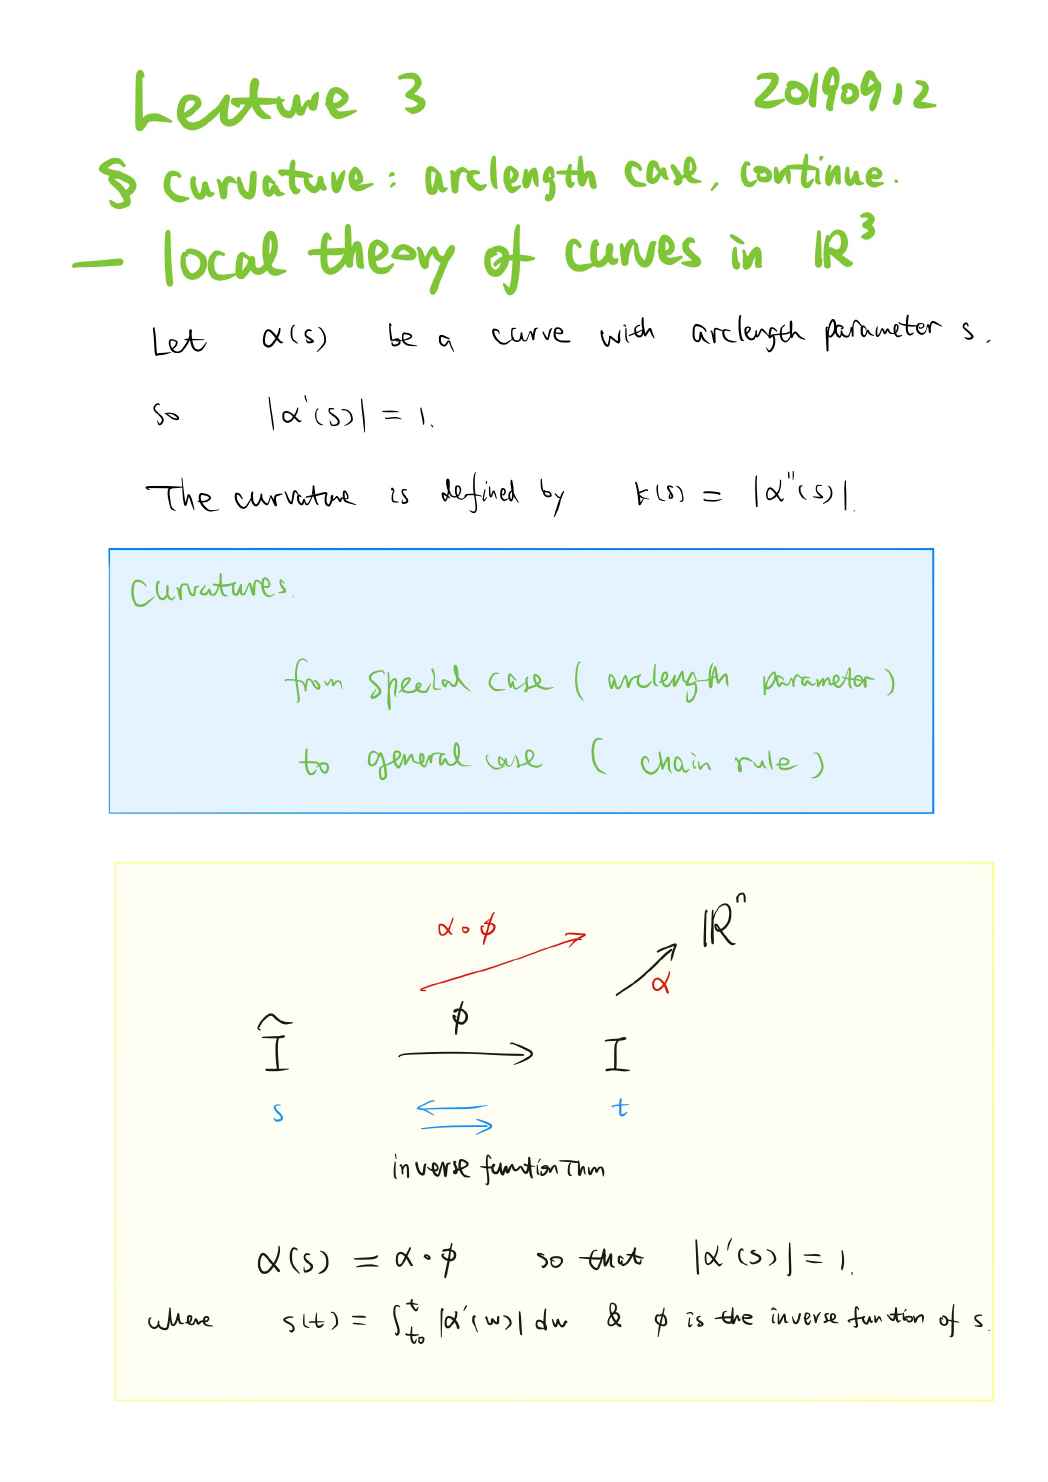 Lecture 3 20190912
§ curvature: arclength case, continue.
— local theory of curves in ℝ³
Let α(s) be a curve with arclength parameter s.
so |α'(s)| = 1.
The curvature is defined by k(s) = |α''(s)|.
Curvatures.
from special case ( arclength parameter )
to general case ( chain rule )
α∘ϕ ℝⁿ
α
ϕ
Ĩ I
s t
inverse function Thm
α(s) = α∘ϕ so that |α'(s)| = 1.
where s(t) = ∫_{t₀}^{t} |α'(w)| dw & ϕ is the inverse function of s.